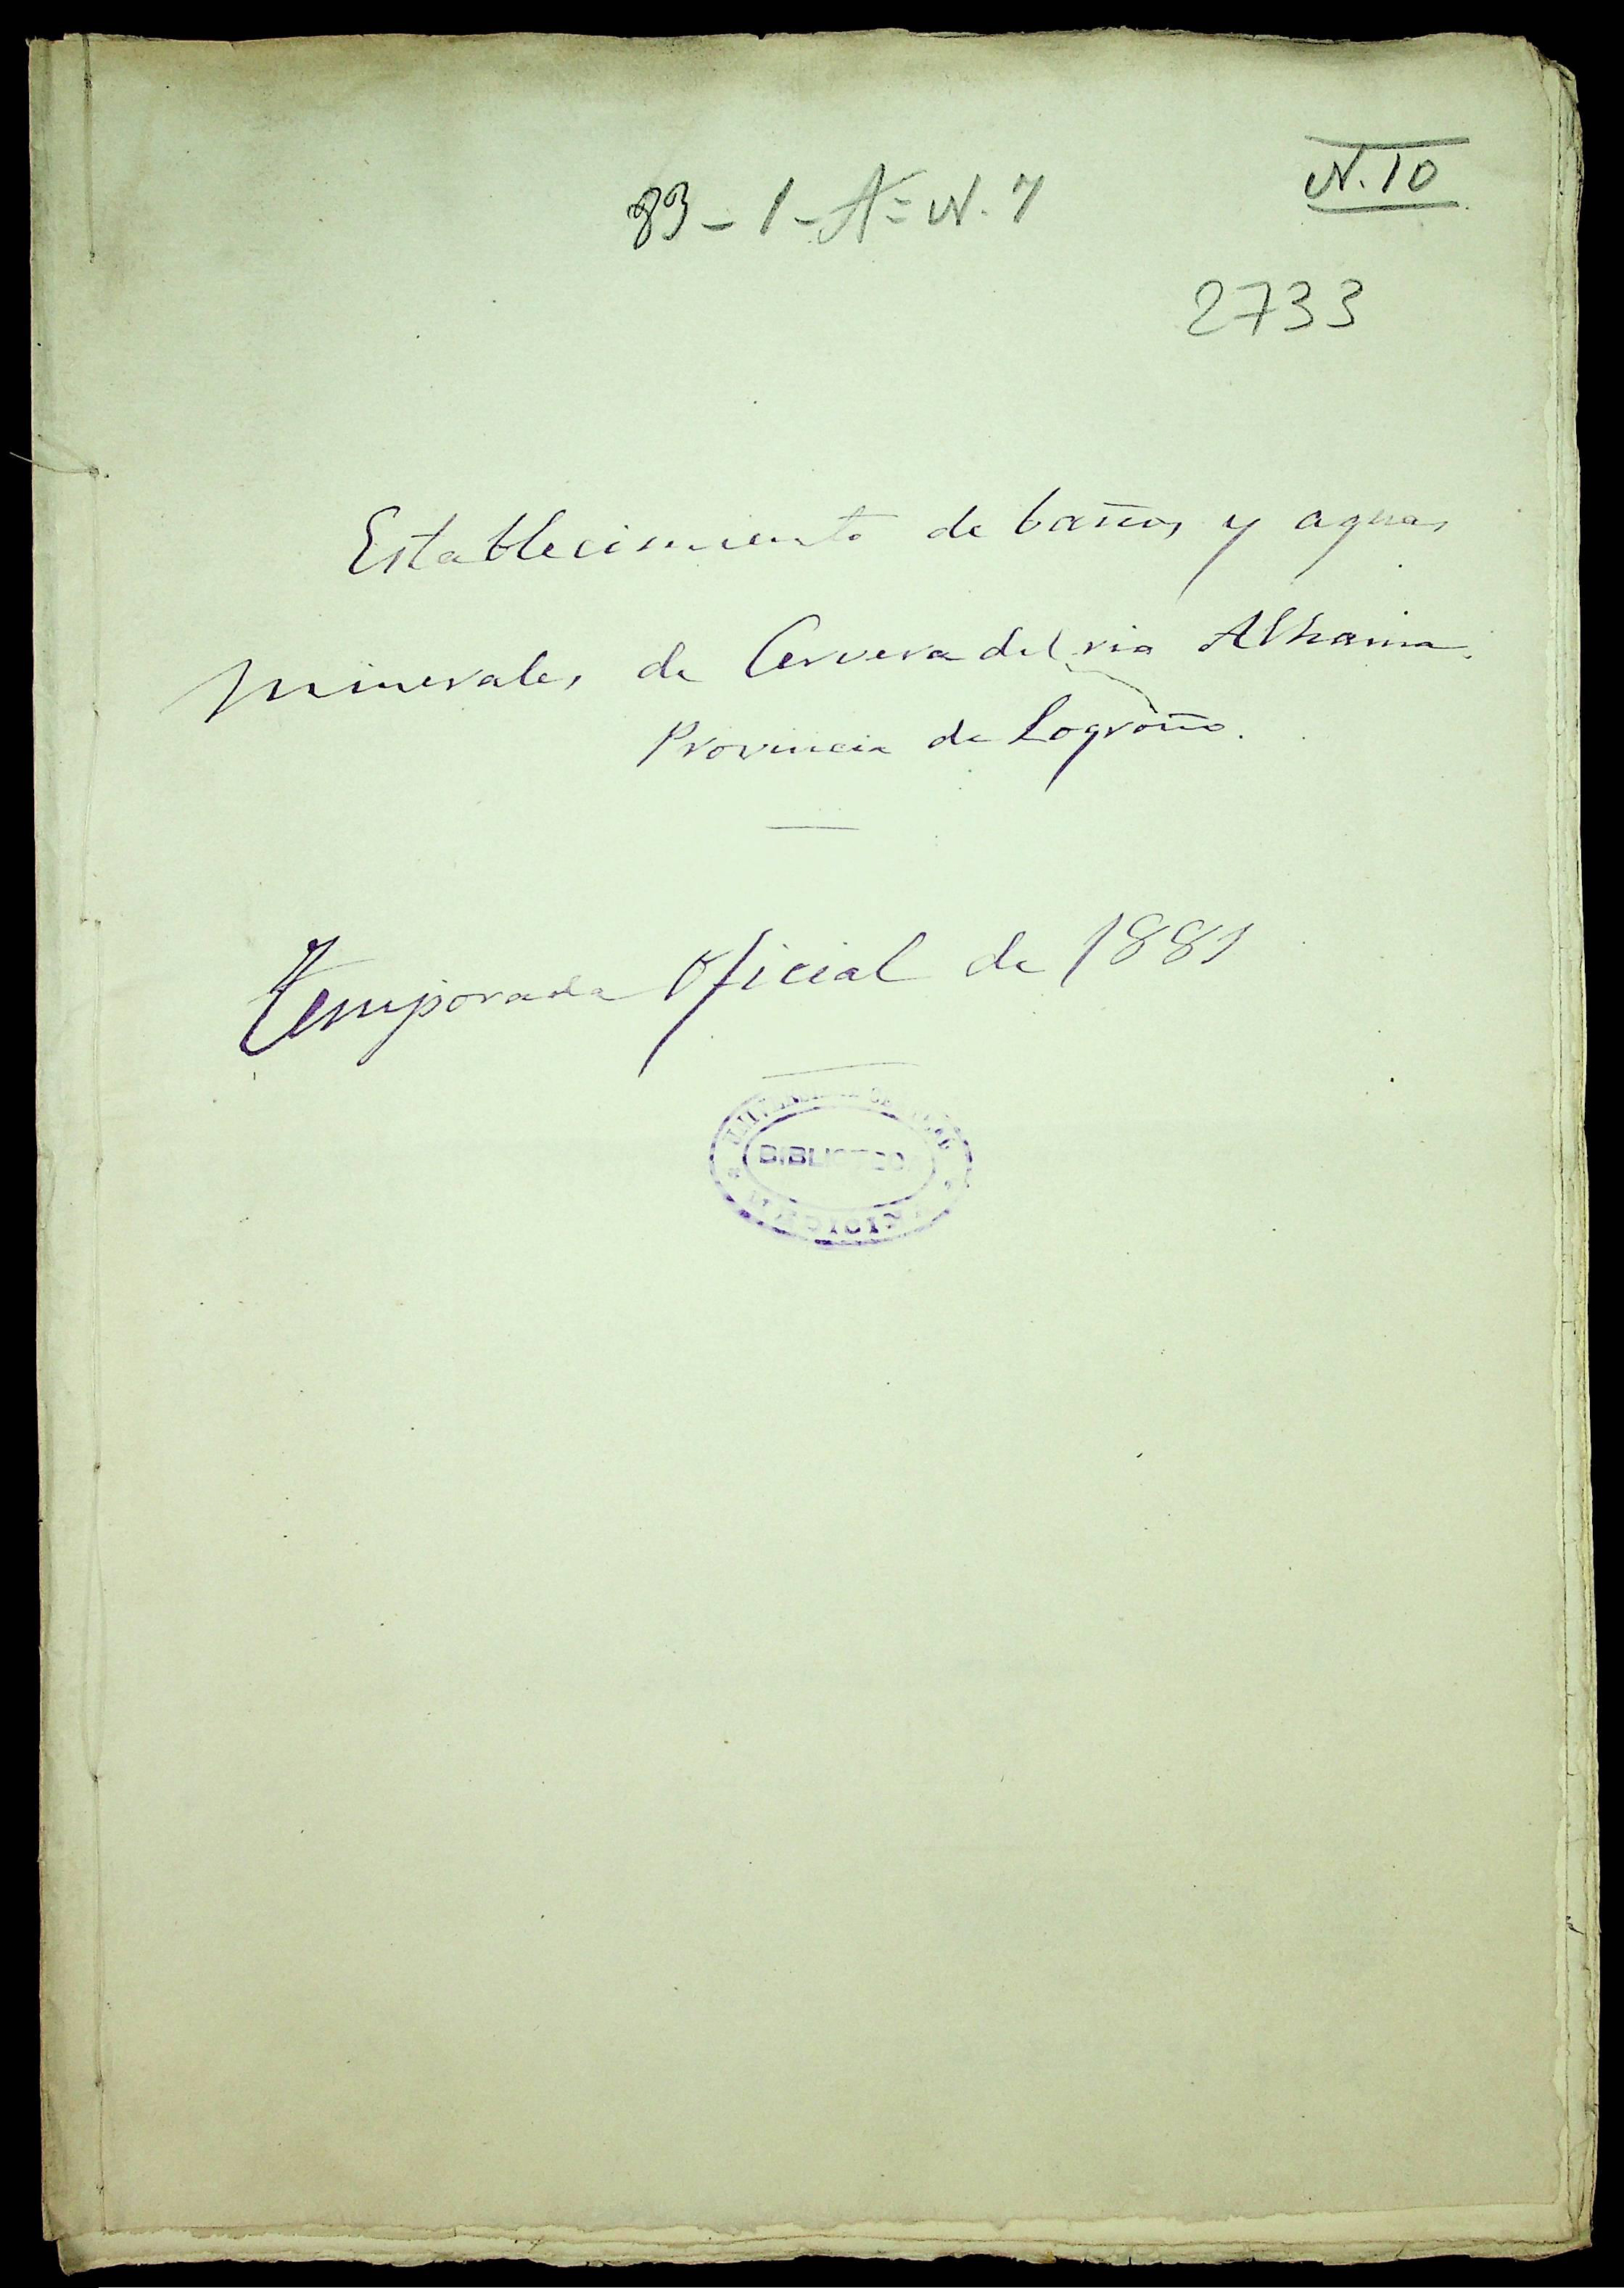 N. 10
83 - 1 - A = N. 7
2733
Establecimiento de baños y aguas
minerales de Cervera del rio Alhama.
Provincia de Logroño.
Temporada Oficial de 1881
BIBLIOTECA
MEDICINA